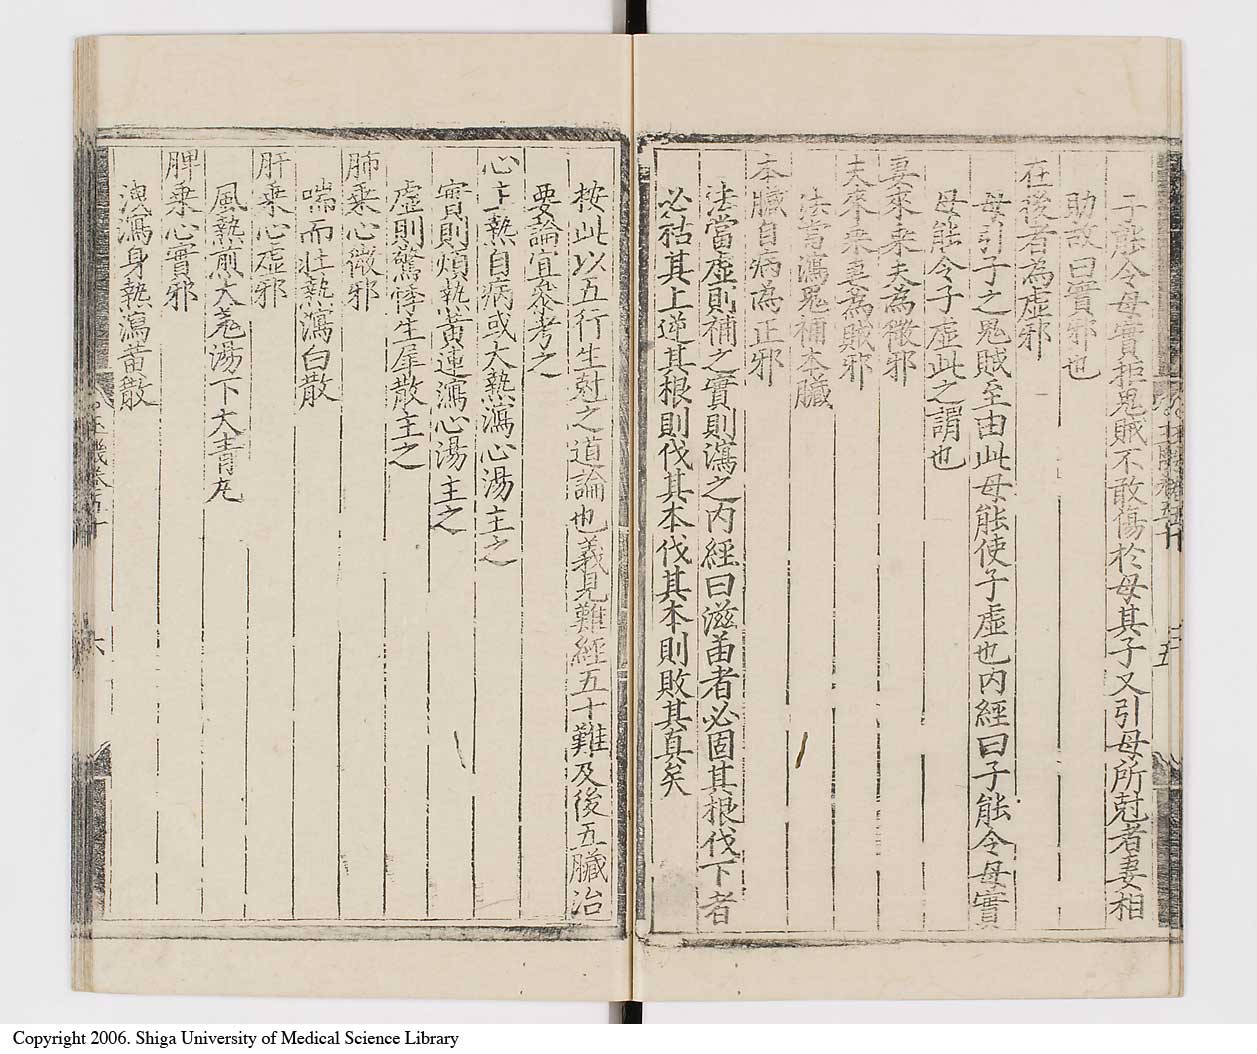 子能令母實拒鬼賊不敢傷於母其子又引母所尅者妻相
助故曰實邪也
在後者為虛邪
母引子之鬼賊至由此母能使子虛也內經曰子能令母實
母能令子虛此之謂也
妻來乘夫為微邪
夫來乘妻為賊邪
法當瀉鬼補本臟
本臟自病為正邪
法當虛則補之實則瀉之內經曰滋苗者必固其根伐下者
必祜其上逆其根則伐其本伐其本則敗其真矣
按此以五行生尅之道論也義見難經五十難及後五臟治
要論宜參考之
心主熱自病或大熱瀉心湯主之
實則煩熱黃連瀉心湯主之
虛則驚悸生犀散主之
肺乘心微邪
喘而壯熱瀉白散
肝乘心虛邪
風熱煎大羗湯下大青丸
脾乘心實邪
洩瀉身熱瀉黃散
六
Copyright 2006. Shiga University of Medical Science Library